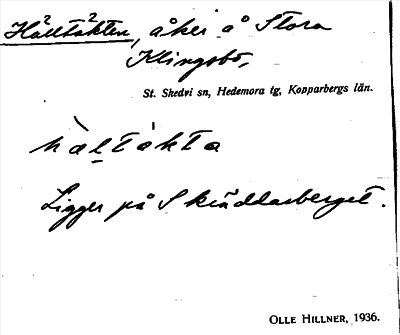 Hålltäkten, åker å Stora
Klingsbo,
St. Skedvi sn, Hedemora tg, Kopparbergs län.
Ligger på Skräddarberget.
OLLE HILLNER, 1936.